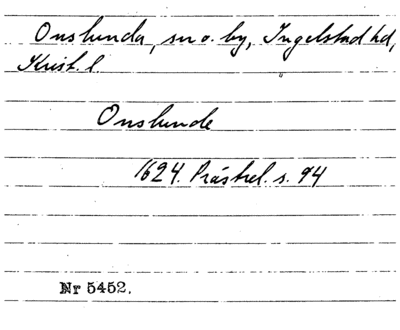 Onslunda, sn o. by, Ingelstad hd,
Krist. l.
Onslunde
1624. Prästrel. s. 94
Nr 5452.